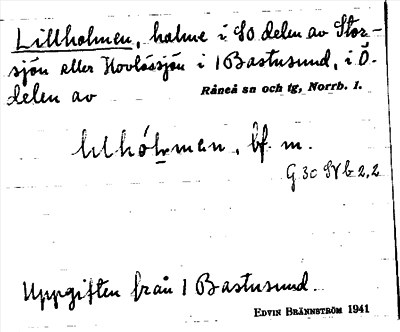 Lillholmen, holme i SO delen av Stor-
sjön eller Hovlössjön i 1 Bastusund, i Ö.
delen av Råneå sn och tg, Norrb. l.
lılhólmen, bf. m.
G 30 SV b 2,2
Uppgiften från 1 Bastusund.
EDVIN BRÄNNSTRÖM 1941